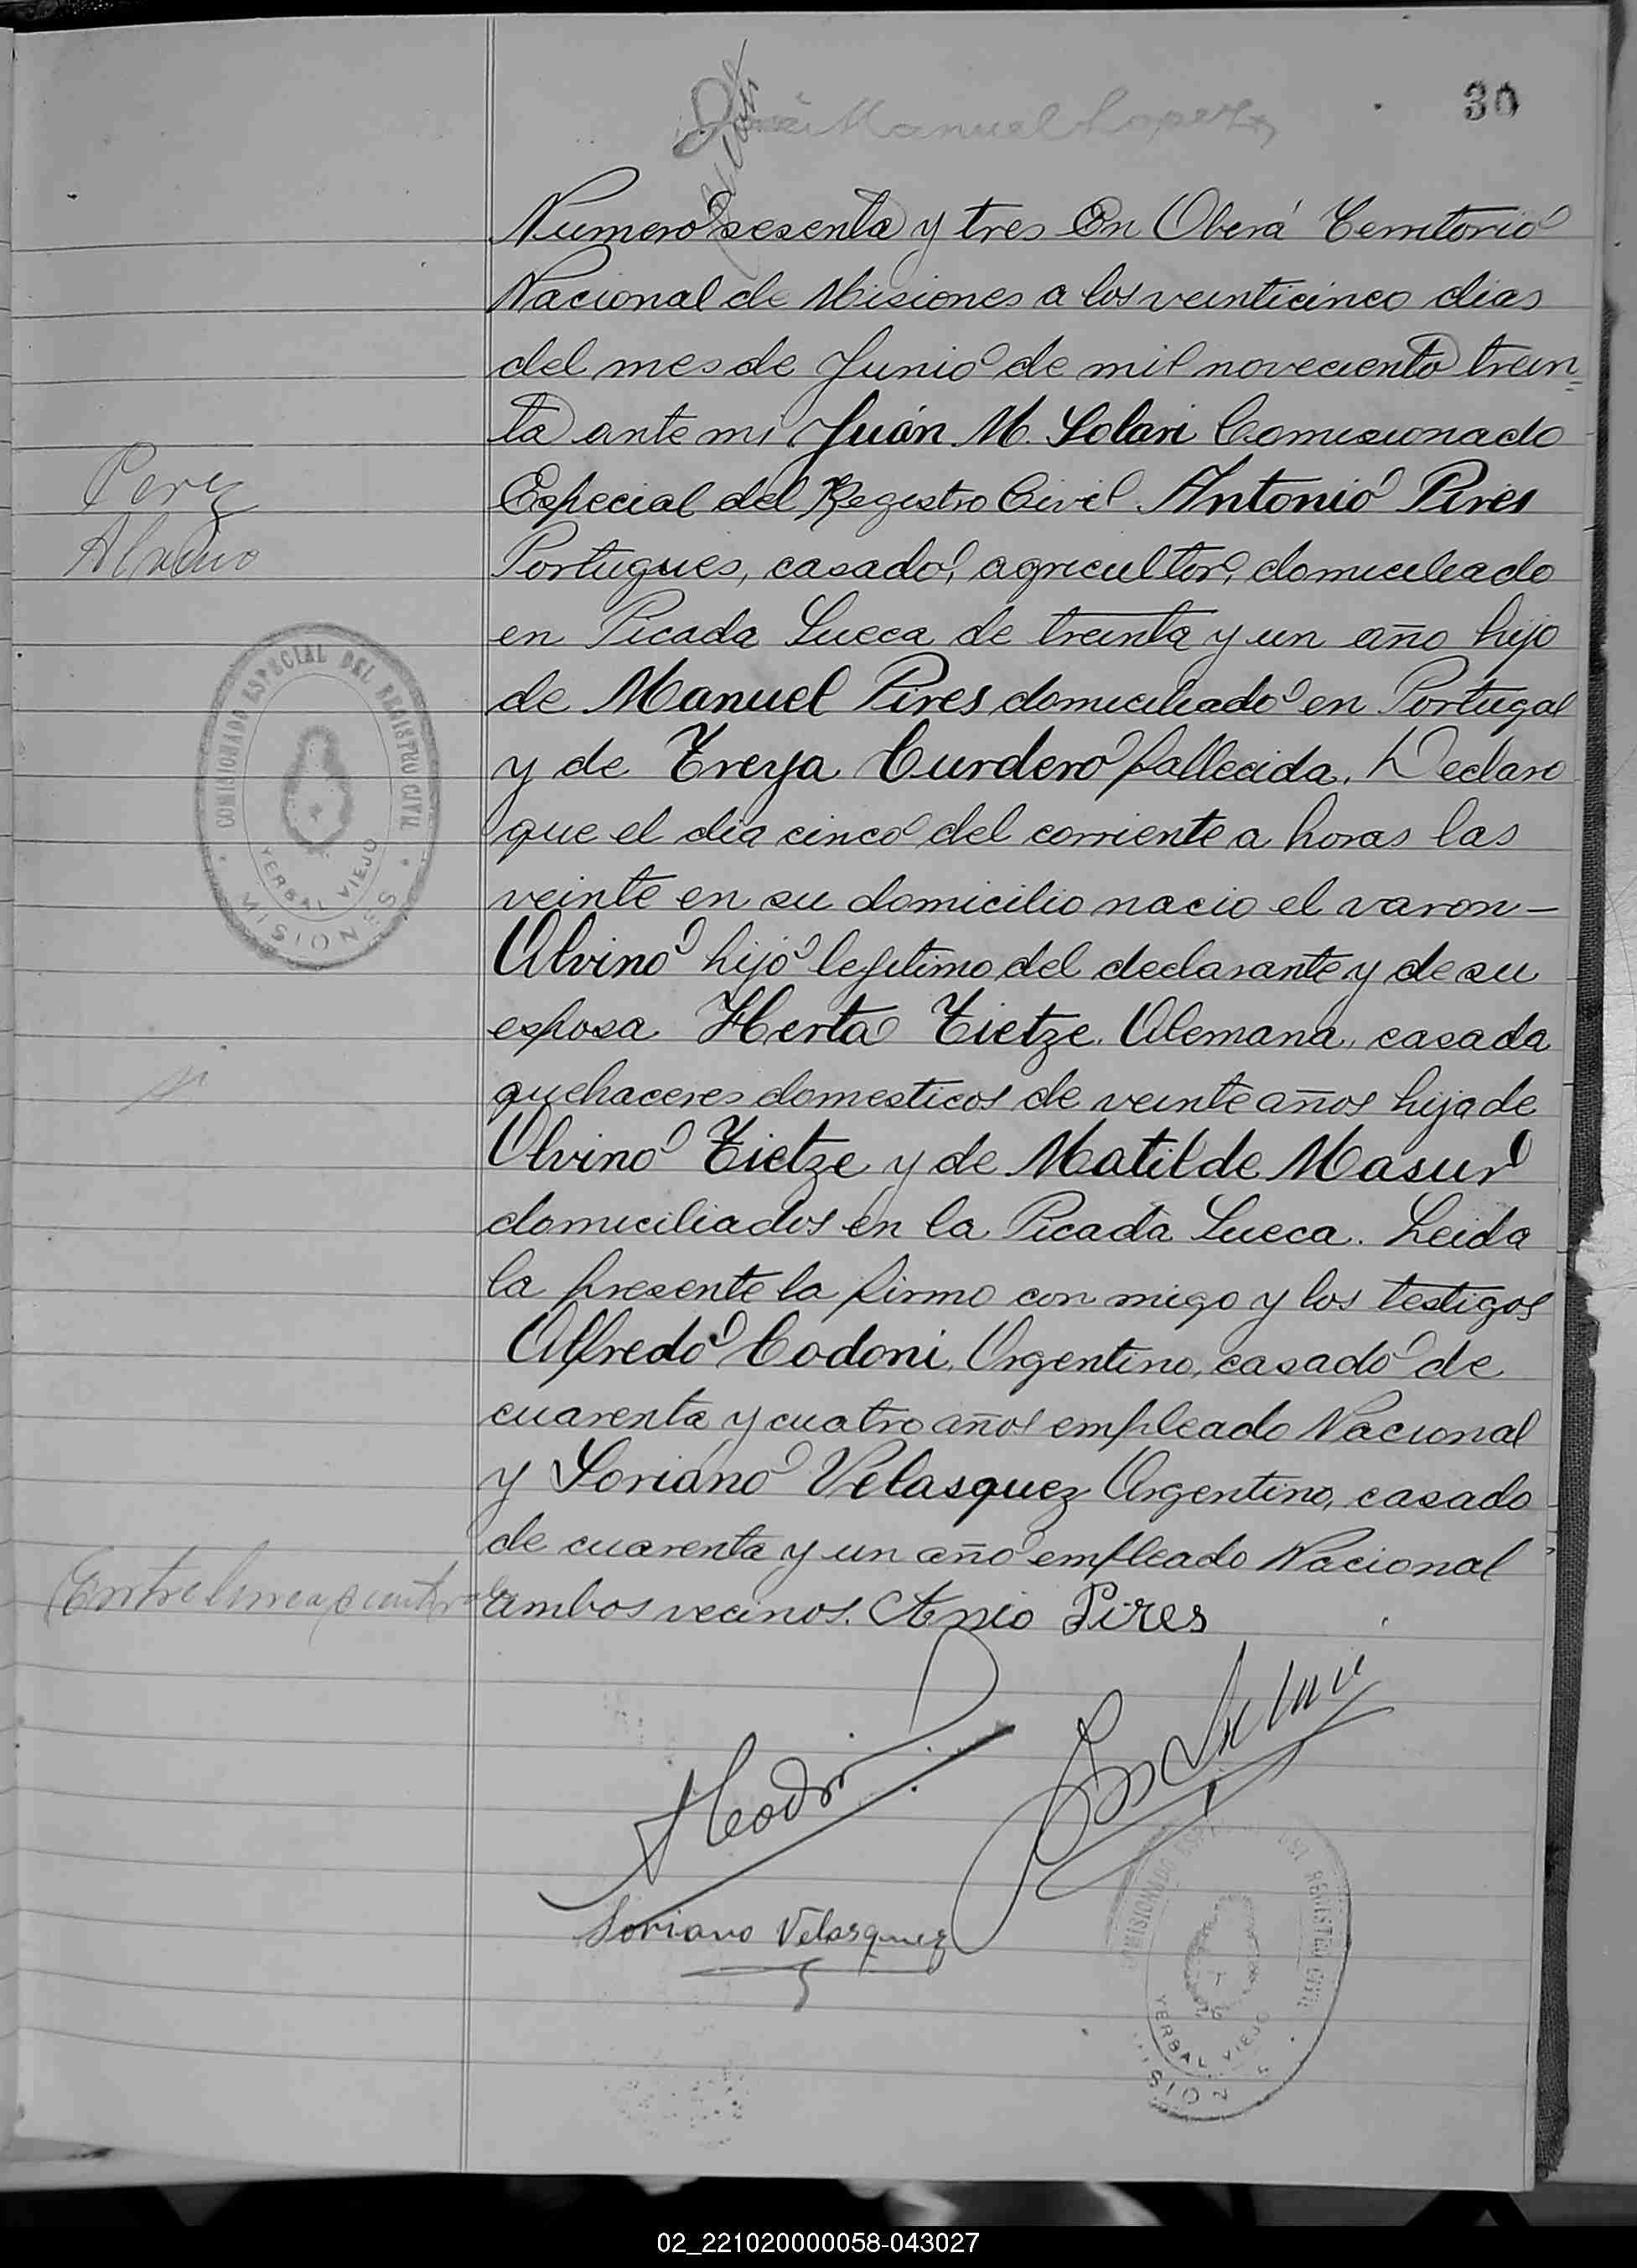 30
José Manuel Lopez
Numero sesenta y tres En Oberá Territorio
Nacional de Misiones a los veinticinco dias
del mes de Junio de mil noveciento trein=
ta ante mi Juán M. Solari Comisionado
Especial del Registro Civil Antonio Pires
Portugues, casado, agricultor, domiciliado
en Picada Sueca de treinta y un año hijo
de Manuel Pires domiciliado en Portugal
y de Treya Curdero fallecida. Declaro
que el dia cinco del corriente a horas las
veinte en su domicilio nacio el varon—
Alvino hijo legitimo del declarante y de su
esposa Herta Tietze. Alemana, casada
quehaceres domesticos de veinte años hija de
Alvino Tietze y de Matilde Masur
domiciliados en la Picada Sueca. Leida
la presente la firmo con migo y los testigos
Alfredo Codoni, Argentino, casado de
cuarenta y cuatro años empleado Nacional
y Soriano Velasquez Argentino, casado
de cuarenta y un año empleado Nacional
ambos vecinos. Anio Pires
Perez
Alvino
COMISIONADO ESPECIAL DEL REGISTRO CIVIL
YERBAL VIEJO
MISIONES
Entre lineas
ACodoni
Soriano Velasquez
COMISIONADO ESPECIAL DEL REGISTRO CIVIL
YERBAL VIEJO
MISIONES
02_221020000058-043027